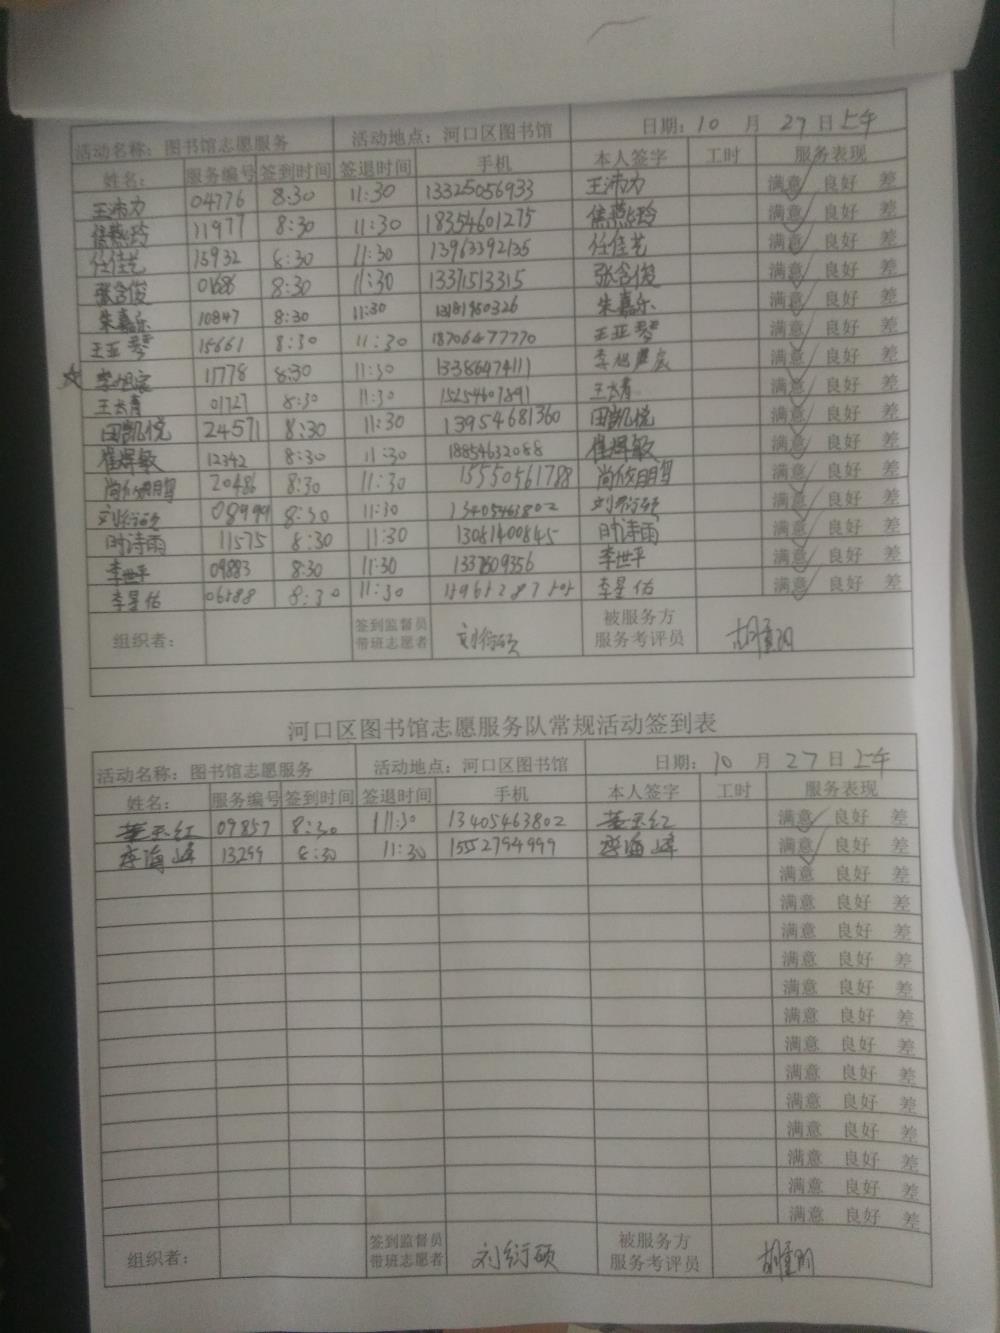 活动名称：图书馆志愿服务 活动地点：河口区图书馆 日期：10 月 27 日上午
姓名： 服务编号 签到时间 签退时间 手机 本人签字 工时 服务表现
王沛力 04776 8:30 11:30 13325056933 王沛力 满意 良好 差
焦燕玲 11977 8:30 11:30 18354601275 焦燕玲 满意 良好 差
任佳艺 15932 8:30 11:30 13963392135 任佳艺 满意 良好 差
张含俊 0168 8:30 11:30 13371513315 张含俊 满意 良好 差
朱嘉乐 10847 8:30 11:30 朱嘉乐 满意 良好 差
王亚琴 15661 8:30 11:30 18706477770 王亚琴 满意 良好 差
11778 8:30 11:30 13386474111 满意 良好 差
01727 8:30 11:30 15254607891 满意 良好 差
田凯悦 24571 8:30 11:30 13954681360 田凯悦 满意 良好 差
崔辉敏 12342 8:30 11:30 18854632088 崔辉敏 满意 良好 差
20486 8:30 11:30 15550561788 满意 良好 差
刘衍硕 08999 8:30 11:30 13405463802 刘衍硕 满意 良好 差
时诗雨 11575 8:30 11:30 13081400845 时诗雨 满意 良好 差
李世平 09883 8:30 11:30 1337609356 李世平 满意 良好 差
李星佑 8:30 11:30 李星佑 满意 良好 差
组织者： 签到监督员 带班志愿者 刘衍硕 被服务方 服务考评员
河口区图书馆志愿服务队常规活动签到表
活动名称：图书馆志愿服务 活动地点：河口区图书馆 日期：10 月 27 日上午
姓名： 服务编号 签到时间 签退时间 手机 本人签字 工时 服务表现
董玉红 09857 8:30 11:30 13405463802 董玉红 满意 良好 差
李海峰 13299 8:30 11:30 15552794999 李海峰 满意 良好 差
满意 良好 差
满意 良好 差
满意 良好 差
满意 良好 差
满意 良好 差
满意 良好 差
满意 良好 差
满意 良好 差
满意 良好 差
满意 良好 差
满意 良好 差
满意 良好 差
满意 良好 差
组织者： 签到监督员 带班志愿者 刘衍硕 被服务方 服务考评员